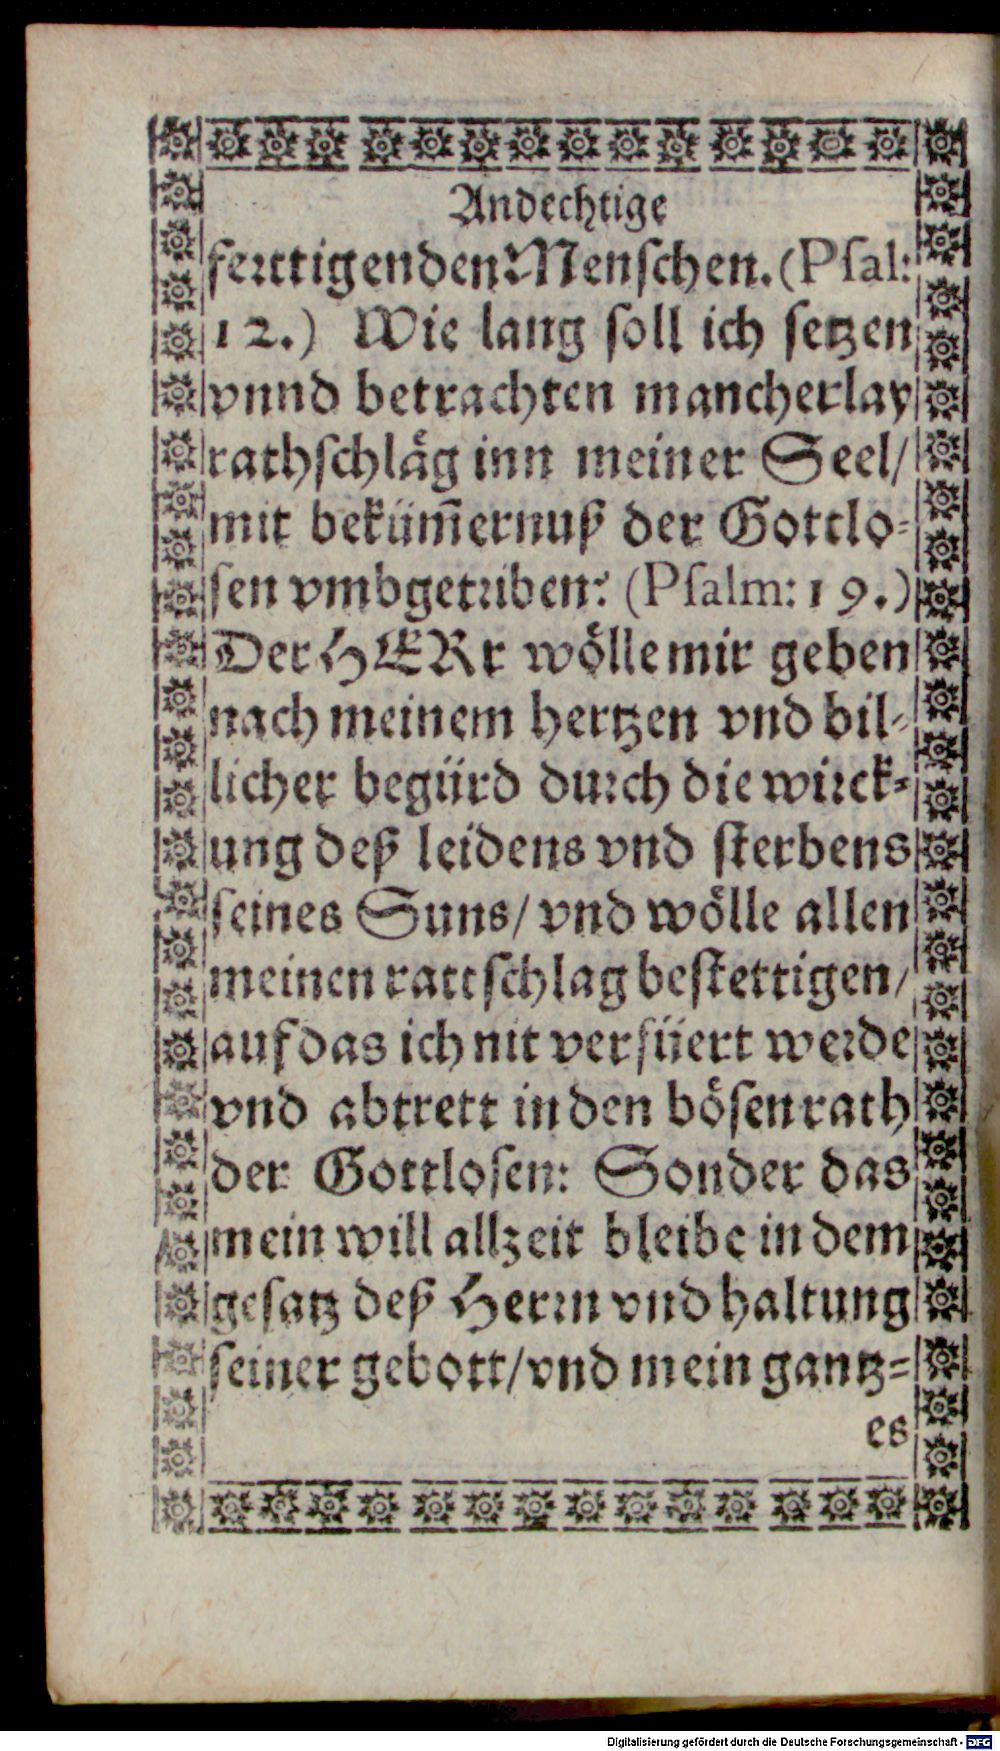 Andechtige
ferttigenden Menschen. (Psal:
12.) Wie lang soll ich setzen
vnnd betrachten mancherlay
rathschläg inn meiner Seel/
mit beküm̃ernuß der Gottlo-
sen vmbgetriben? (Psalm: 19.)
Der HERr wölle mir geben
nach meinem hertzen vnd bil-
licher begürd durch die wirck-
ung deß leidens vnd sterbens
seines Suns/ vnd wölle allen
meinen rattschlag bestettigen/
auf das ich nit verfüert werde
vnd abtrett in den bösen rath
der Gottlosen: Sonder das
mein will allzeit bleibe in dem
gesatz deß Herrn vnd haltung
seiner gebott/ vnd mein gantz-
es
Digitalisierung gefördert durch die Deutsche Forschungsgemeinschaft - DFG